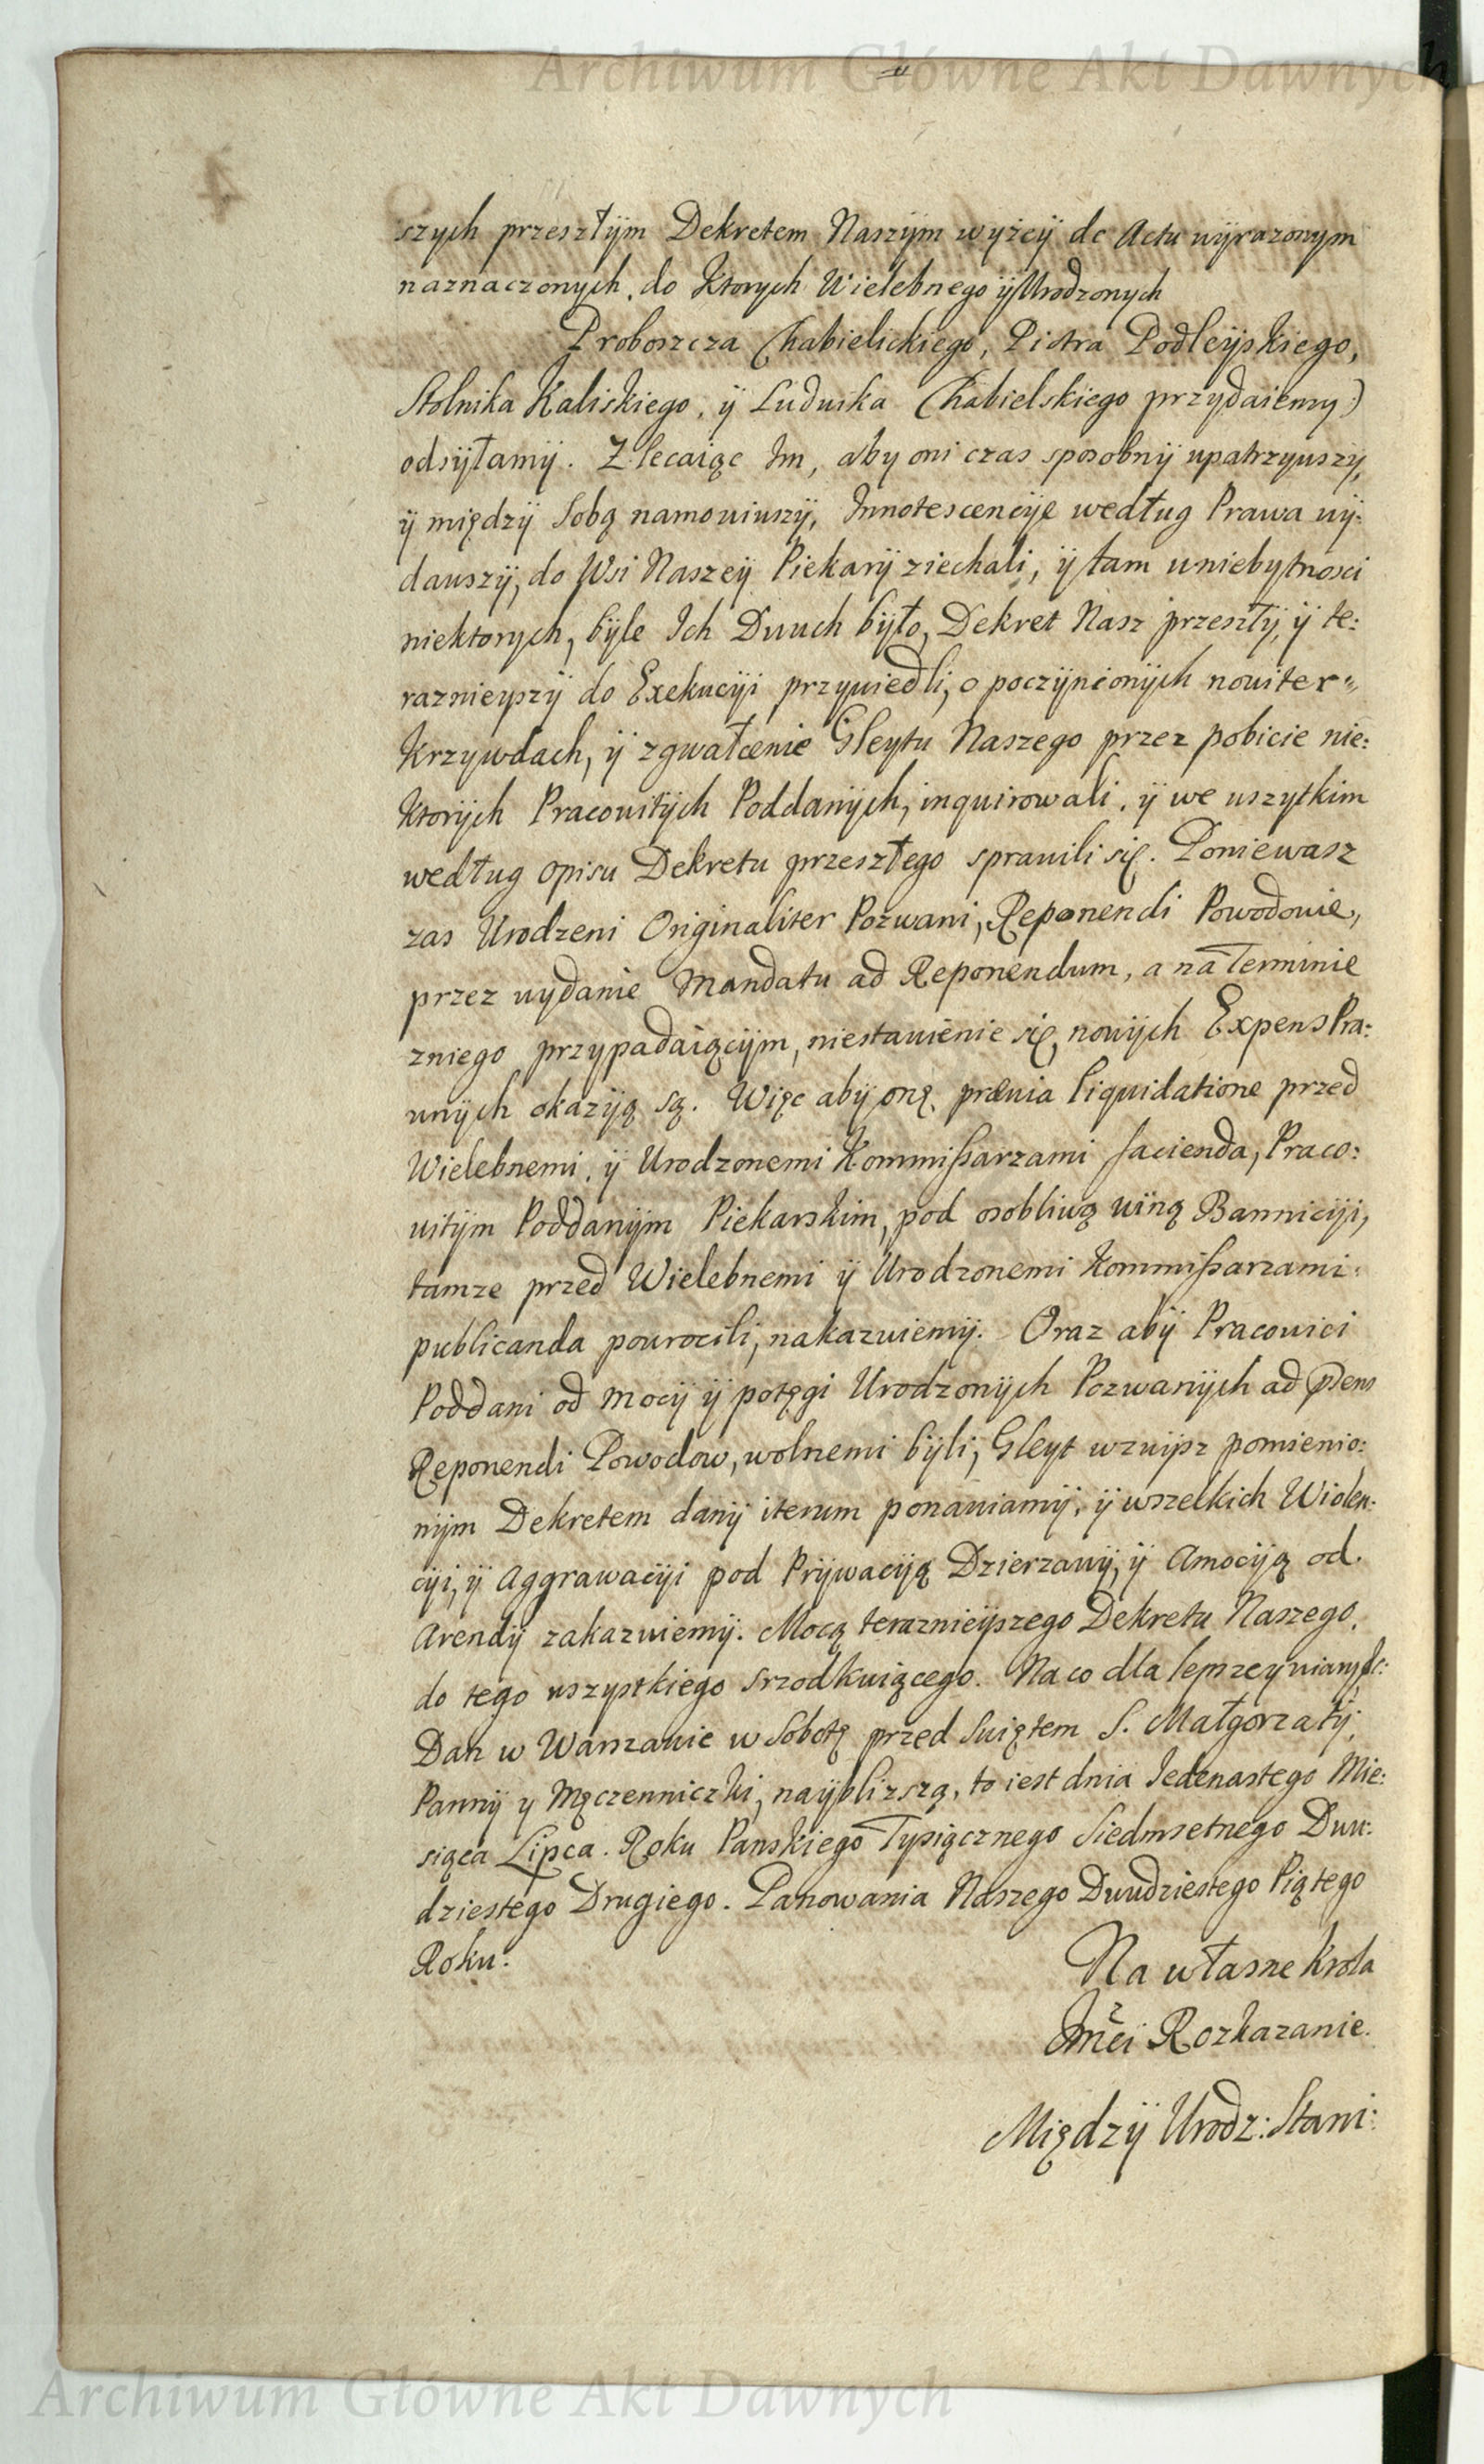 Archiwum Główne Akt Dawnych
szych przeszłÿm Dekretem Naszÿm wyżeÿ de Actu wÿrazonym
naznaczonych, do Ktorych Wielebnego ÿ Urodzonych
Proboszcza Chabielickiego, Piotra Podleÿskiego,
Stolnika Kaliskiego, ÿ Ludwika Chabielskiego przydaiemy)
odsÿłamÿ. Zlecaiąc Im, aby oni czas sposobnÿ upatrzywszÿ,
ÿ międzÿ Sobą namowiwszÿ, Innotescencÿę według Prawa wÿ:
dawszÿ, do Wsi Naszeÿ Piekarÿ ziechali, ÿ tam w niebytnosci
niektorych, bÿle Ich Dwuch bÿło, Dekret Nasz przeszłÿ, ÿ te:
raznieyszÿ do Exekucÿi przywiedli, o poczÿnionÿch noviter
Krzywdach, ÿ zgwałcenie Gleytu Naszego przez pobicie nie:
Ktorÿch Pracowitÿch Poddanÿch, inquirowali, ÿ we wszytkim
według opisu Dekretu przeszłego sprawili się. Poniewasz
zas Urodzeni Originaliter Pozwani, Reponendi Powodowie,
przez wydanie Mandatu ad Reponendum, a na Terminie
zniego przypadaiącÿm, niestawienie się, nowÿch Expens Pra:
wnÿch okazÿą są. Więc abÿ onę, prævia liquidatione przed
Wielebnemi, ÿ Urodzonemi Kommißarzami facienda, Praco:
witÿm Poddanÿm Piekarskim, pod osobliwą winą Bannicÿi,
tamze przed Wielebnemi ÿ Urodzonemi Kommißarzami
publicanda powrocili, nakazuiemÿ. Oraz abÿ Pracowici
Poddani od mocÿ ÿ potęgi Urodzonÿch Pozwanÿch ad præns
Reponendi Powodow, wolnemi bÿli, Gleyt wzwÿsz pomienio:
nÿm Dekretem danÿ iterum ponawiamÿ, ÿ wszelkich Wiolen:
cÿi, ÿ Aggrawacÿi pod Prÿwacÿą Dzierzawÿ, ÿ Amocÿą od
Arendÿ zakazuiemÿ. Mocą teraznieÿszego Dekretu Naszego,
do tego wszystkiego srzodkuiącego. Na co dla lepszeÿ wiary &c:
Dan w Warszawie w Sobotę przed Swiętem S. Małgorzatÿ,
Pannÿ y Męczenniczki, naÿblizszą, to iest dnia Jedenastego Mie:
siąca Lipca. Roku Panskiego Tysiącznego Siedmsetnego Dwu:
dziestego Drugiego. Panowania Naszego Dwudziestego Piątego
Roku.
Na własne Krola
Jmci Rozkazanie.
Międzÿ Urodz: Stani:
Archiwum Główne Akt Dawnych